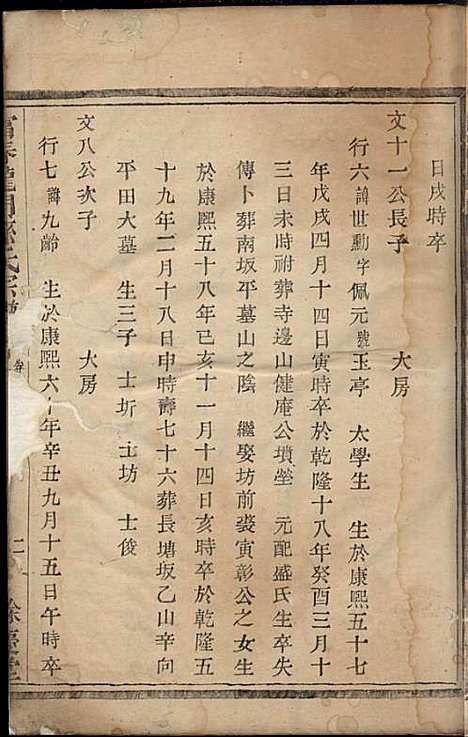 日戌時卒
文十一公長子　大房
行六諱世勳字佩元號玉亭　太學生　生於康熙五十七
年戊戌四月十四日寅時卒於乾隆十八年癸酉三月十
三日未時祔葬寺邊山健庵公墳塋　元配盛氏生卒失
傳卜葬南坂平墓山之陰　繼娶坊前裘寅彰公之女生
於康熙五十八年己亥十一月十四日亥時卒於乾隆五
十九年二月十八日申時壽七十六葬長塘坂乙山辛向
平田大墓　生三子　士圻　士坊　士俊
文八公次子　大房
行七諱九齡　生於康熙六十年辛丑九月十五日午時卒
卷　二